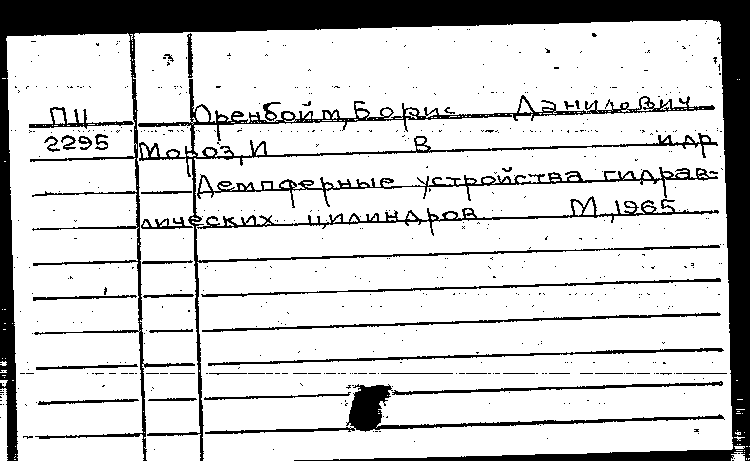 ПЦ Оренбойм, Борис Данилович
2295 Мороз, И В и др
Демпферные устройства гидрав-
лических цилиндров М, 1965